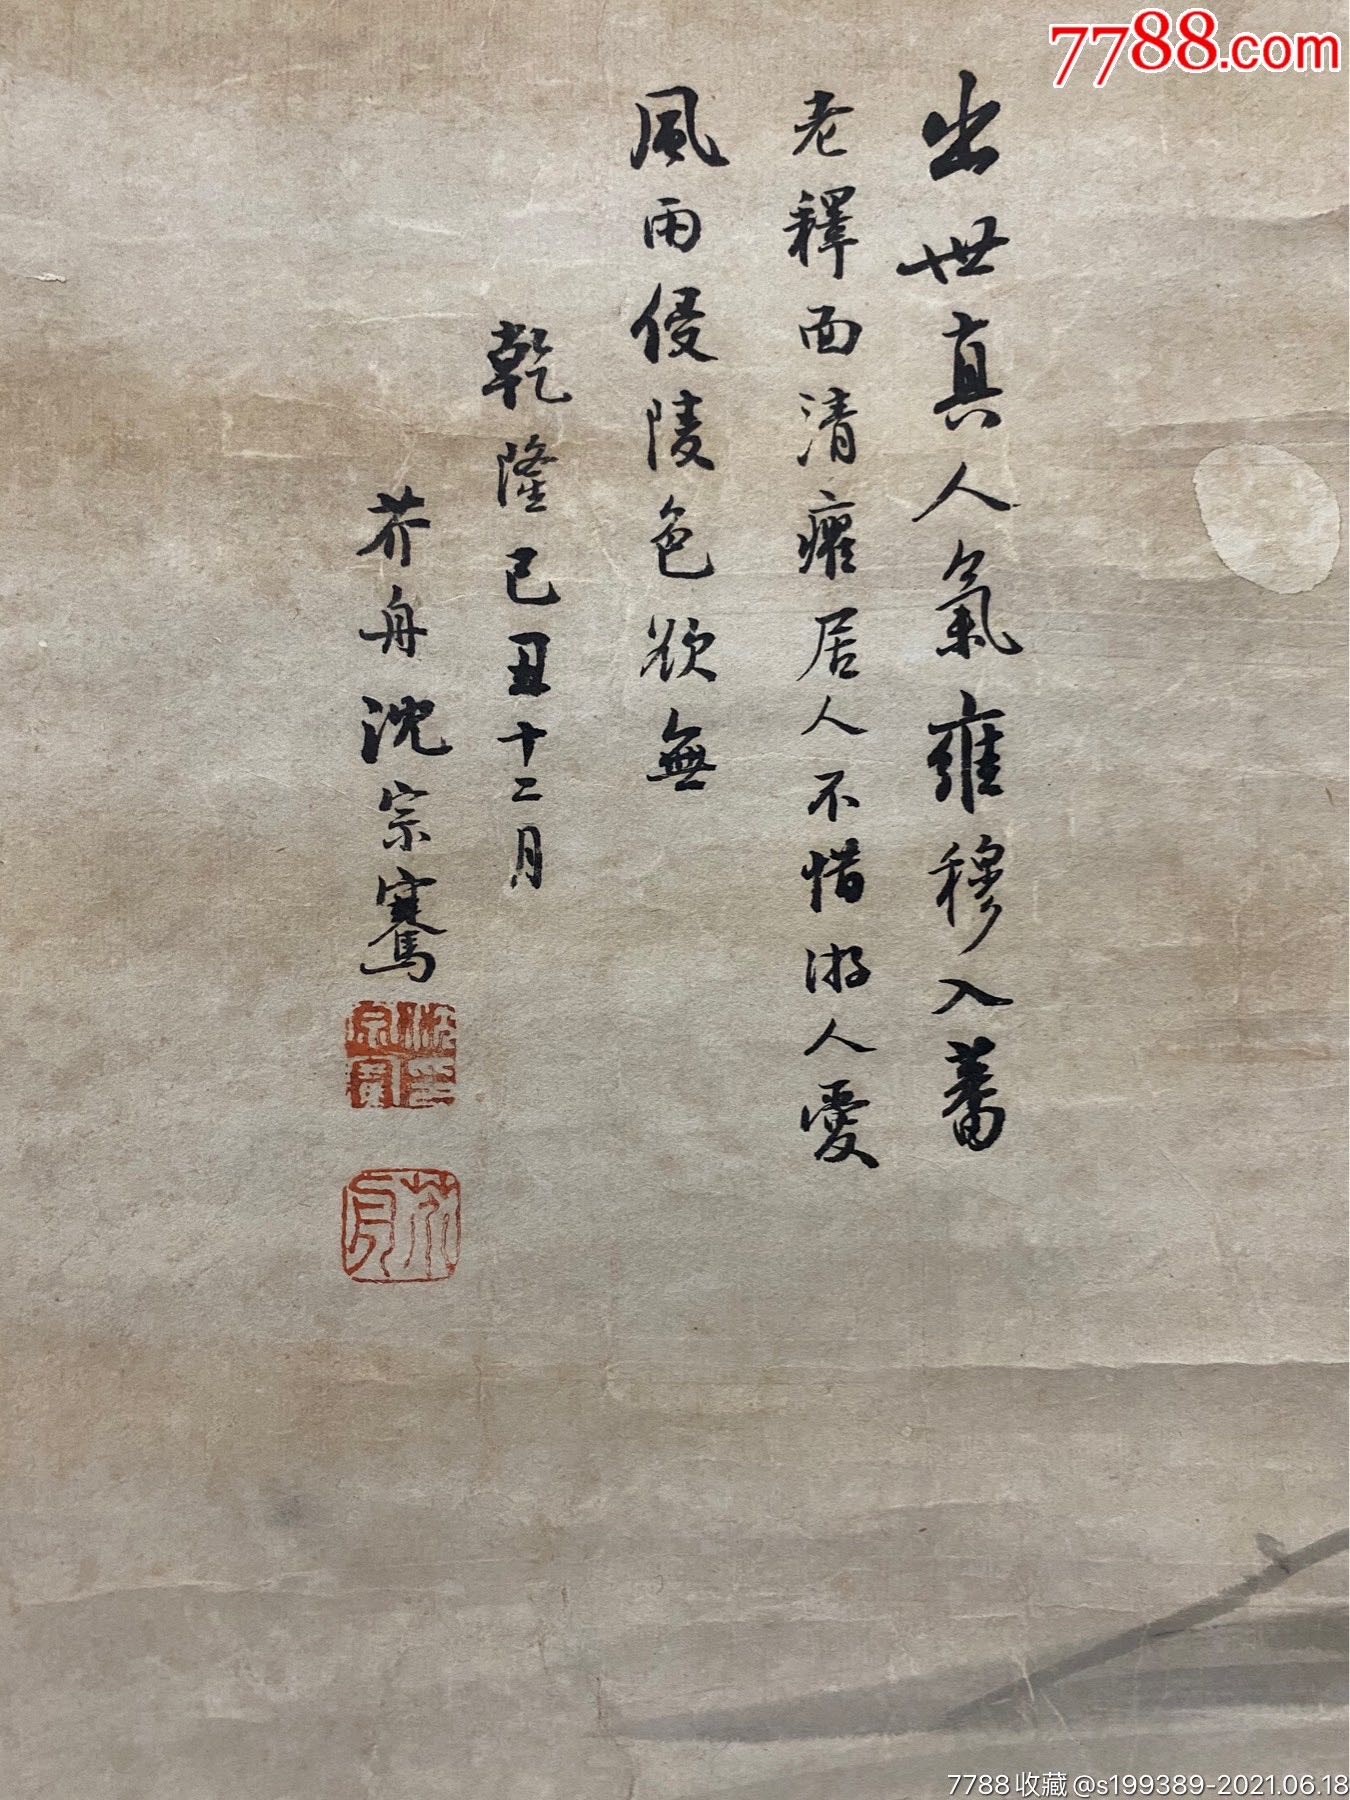 7788.com
出世真人氣雍穆入蕃
老釋面清癯居人不惜游人愛
風雨侵陵色欲無
乾隆己丑十二月
芥舟沈宗騫
7788收藏@s199389-2021.06.18